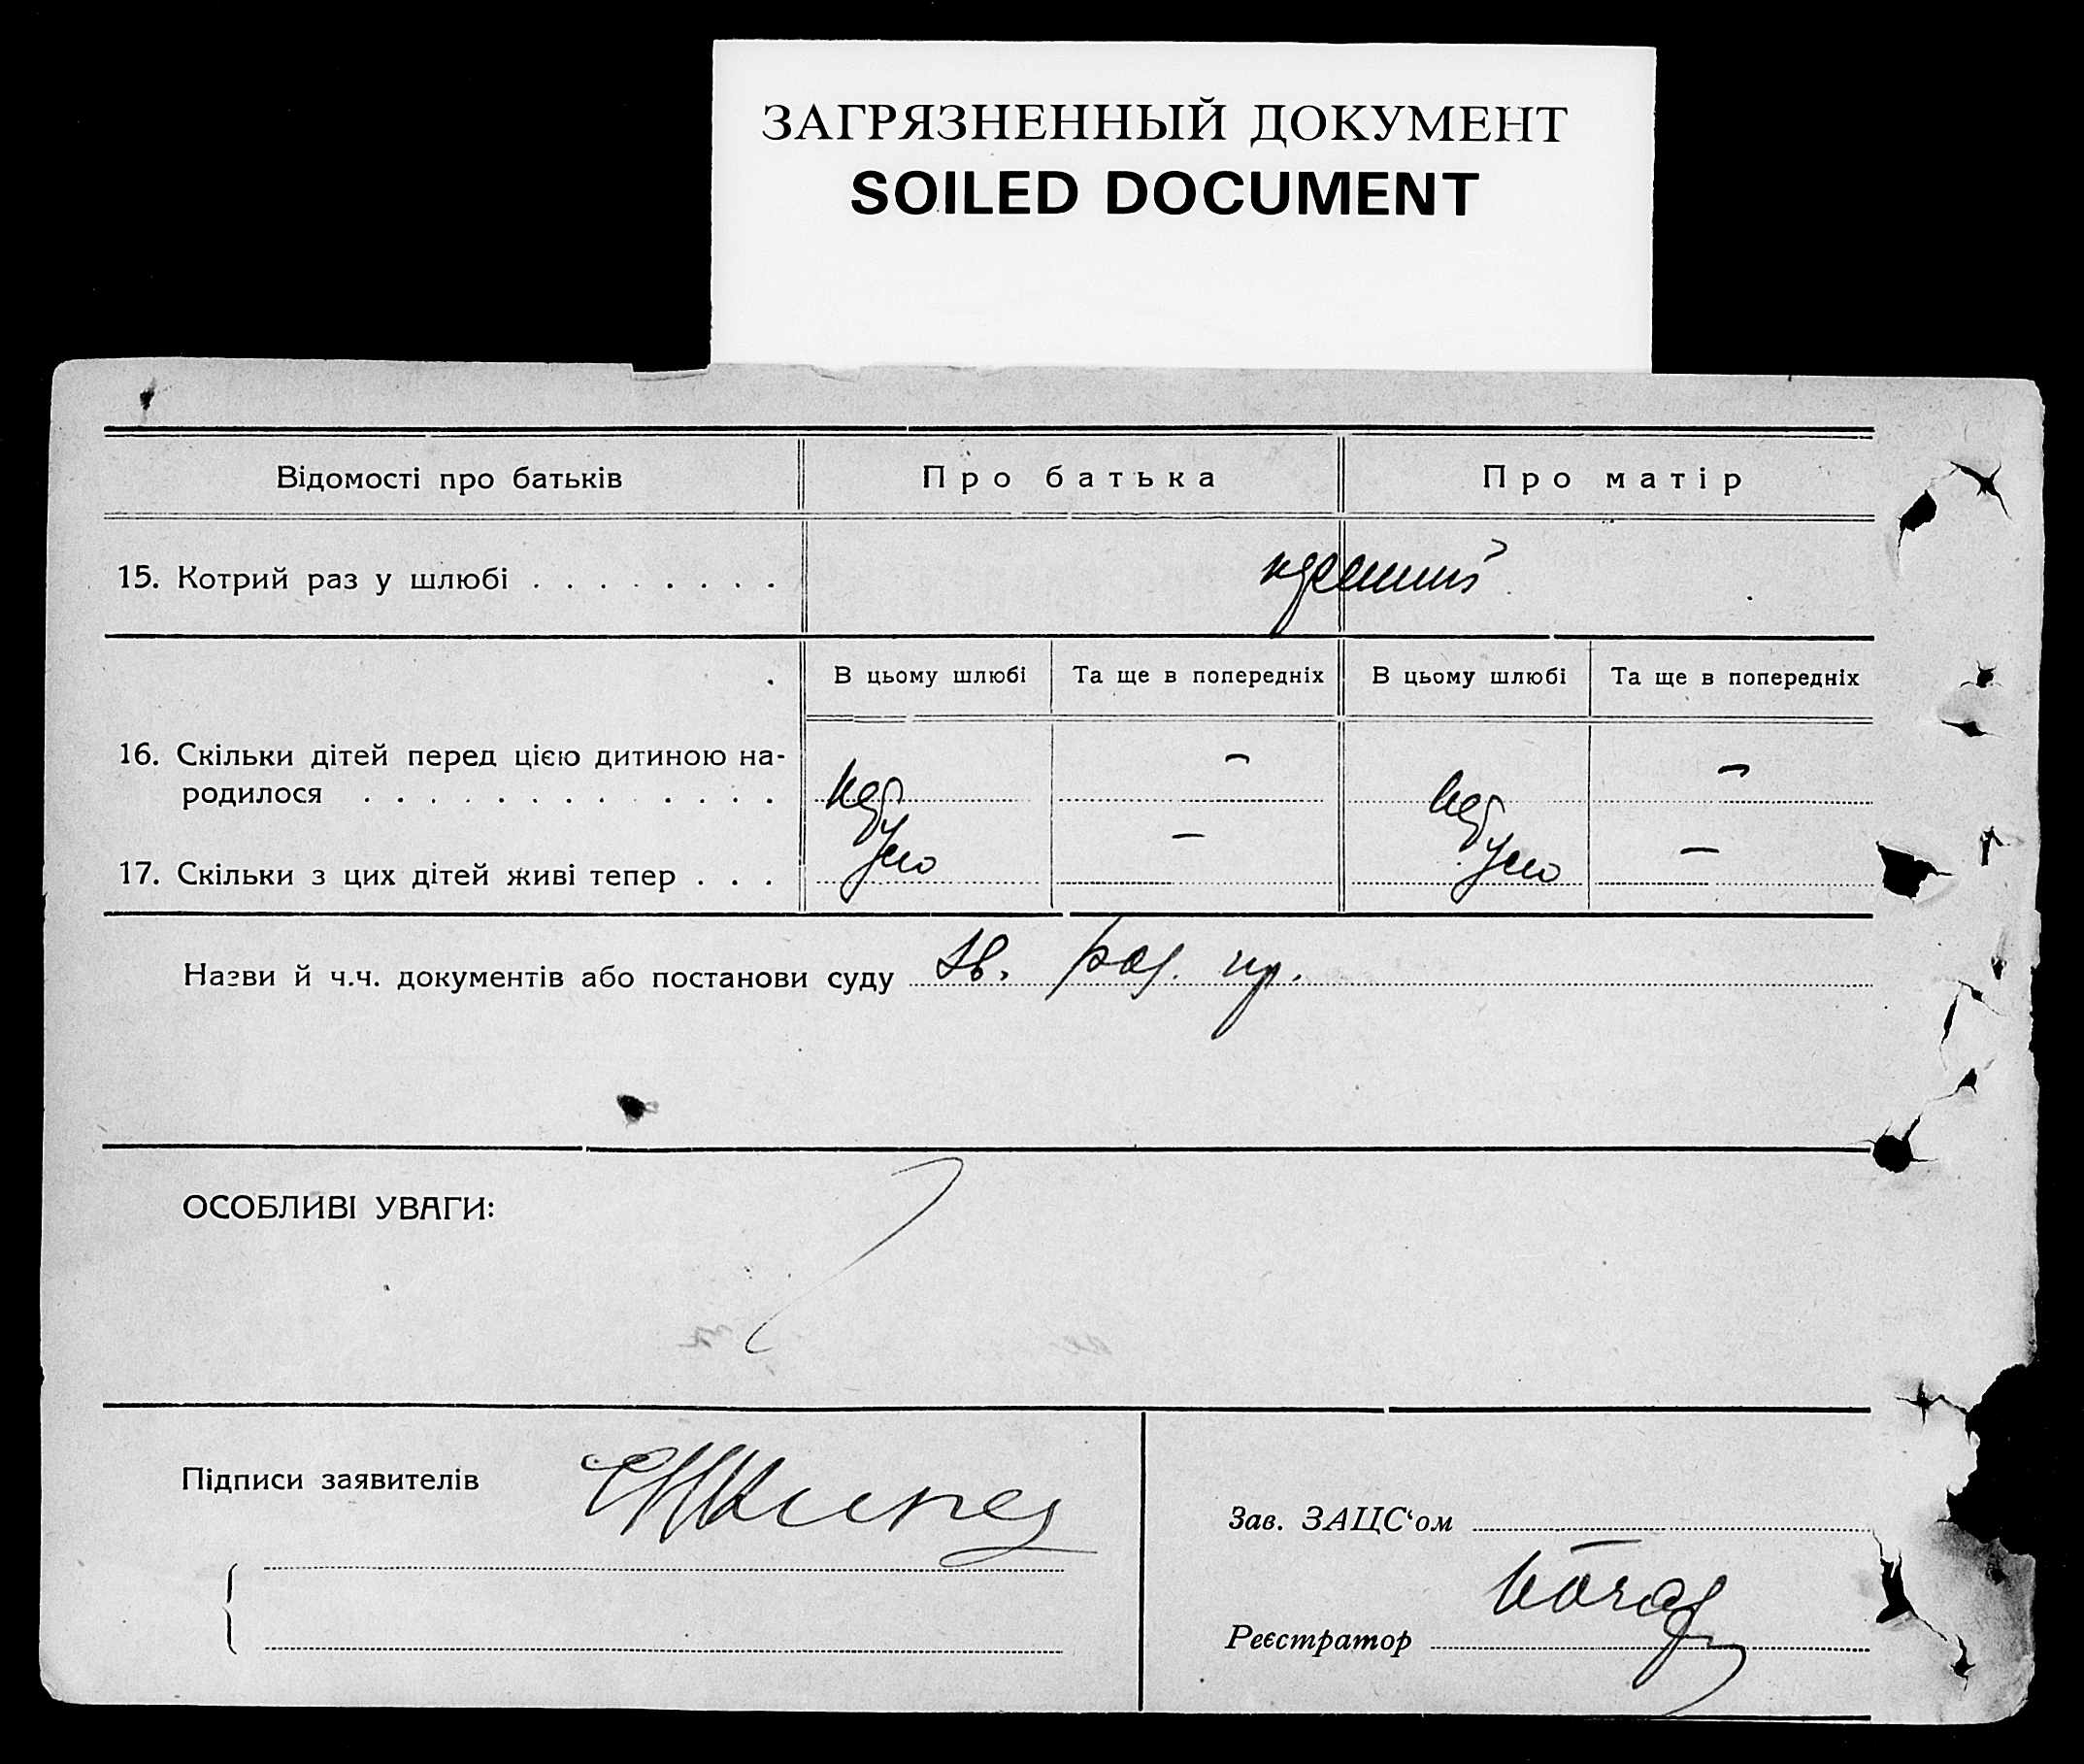 ЗАГРЯЗНЕННЫЙ ДОКУМЕНТ
SOILED DOCUMENT
Відомості про батьків
Про батька
Про матір
15. Котрий раз у шлюбі . . . . . . . .
В цьому шлюбі
Та ще в попередніх
В цьому шлюбі
Та ще в попередніх
16. Скільки дітей перед цією дитиною на-
родилося . . . . . . . . . . . . .
—
—
17. Скільки з цих дітей живі тепер . . .
—
—
Назви й ч.ч. документів або постанови суду
ОСОБЛИВІ УВАГИ:
Підписи заявителів
Зав. ЗАЦС‘ом
Реєстратор